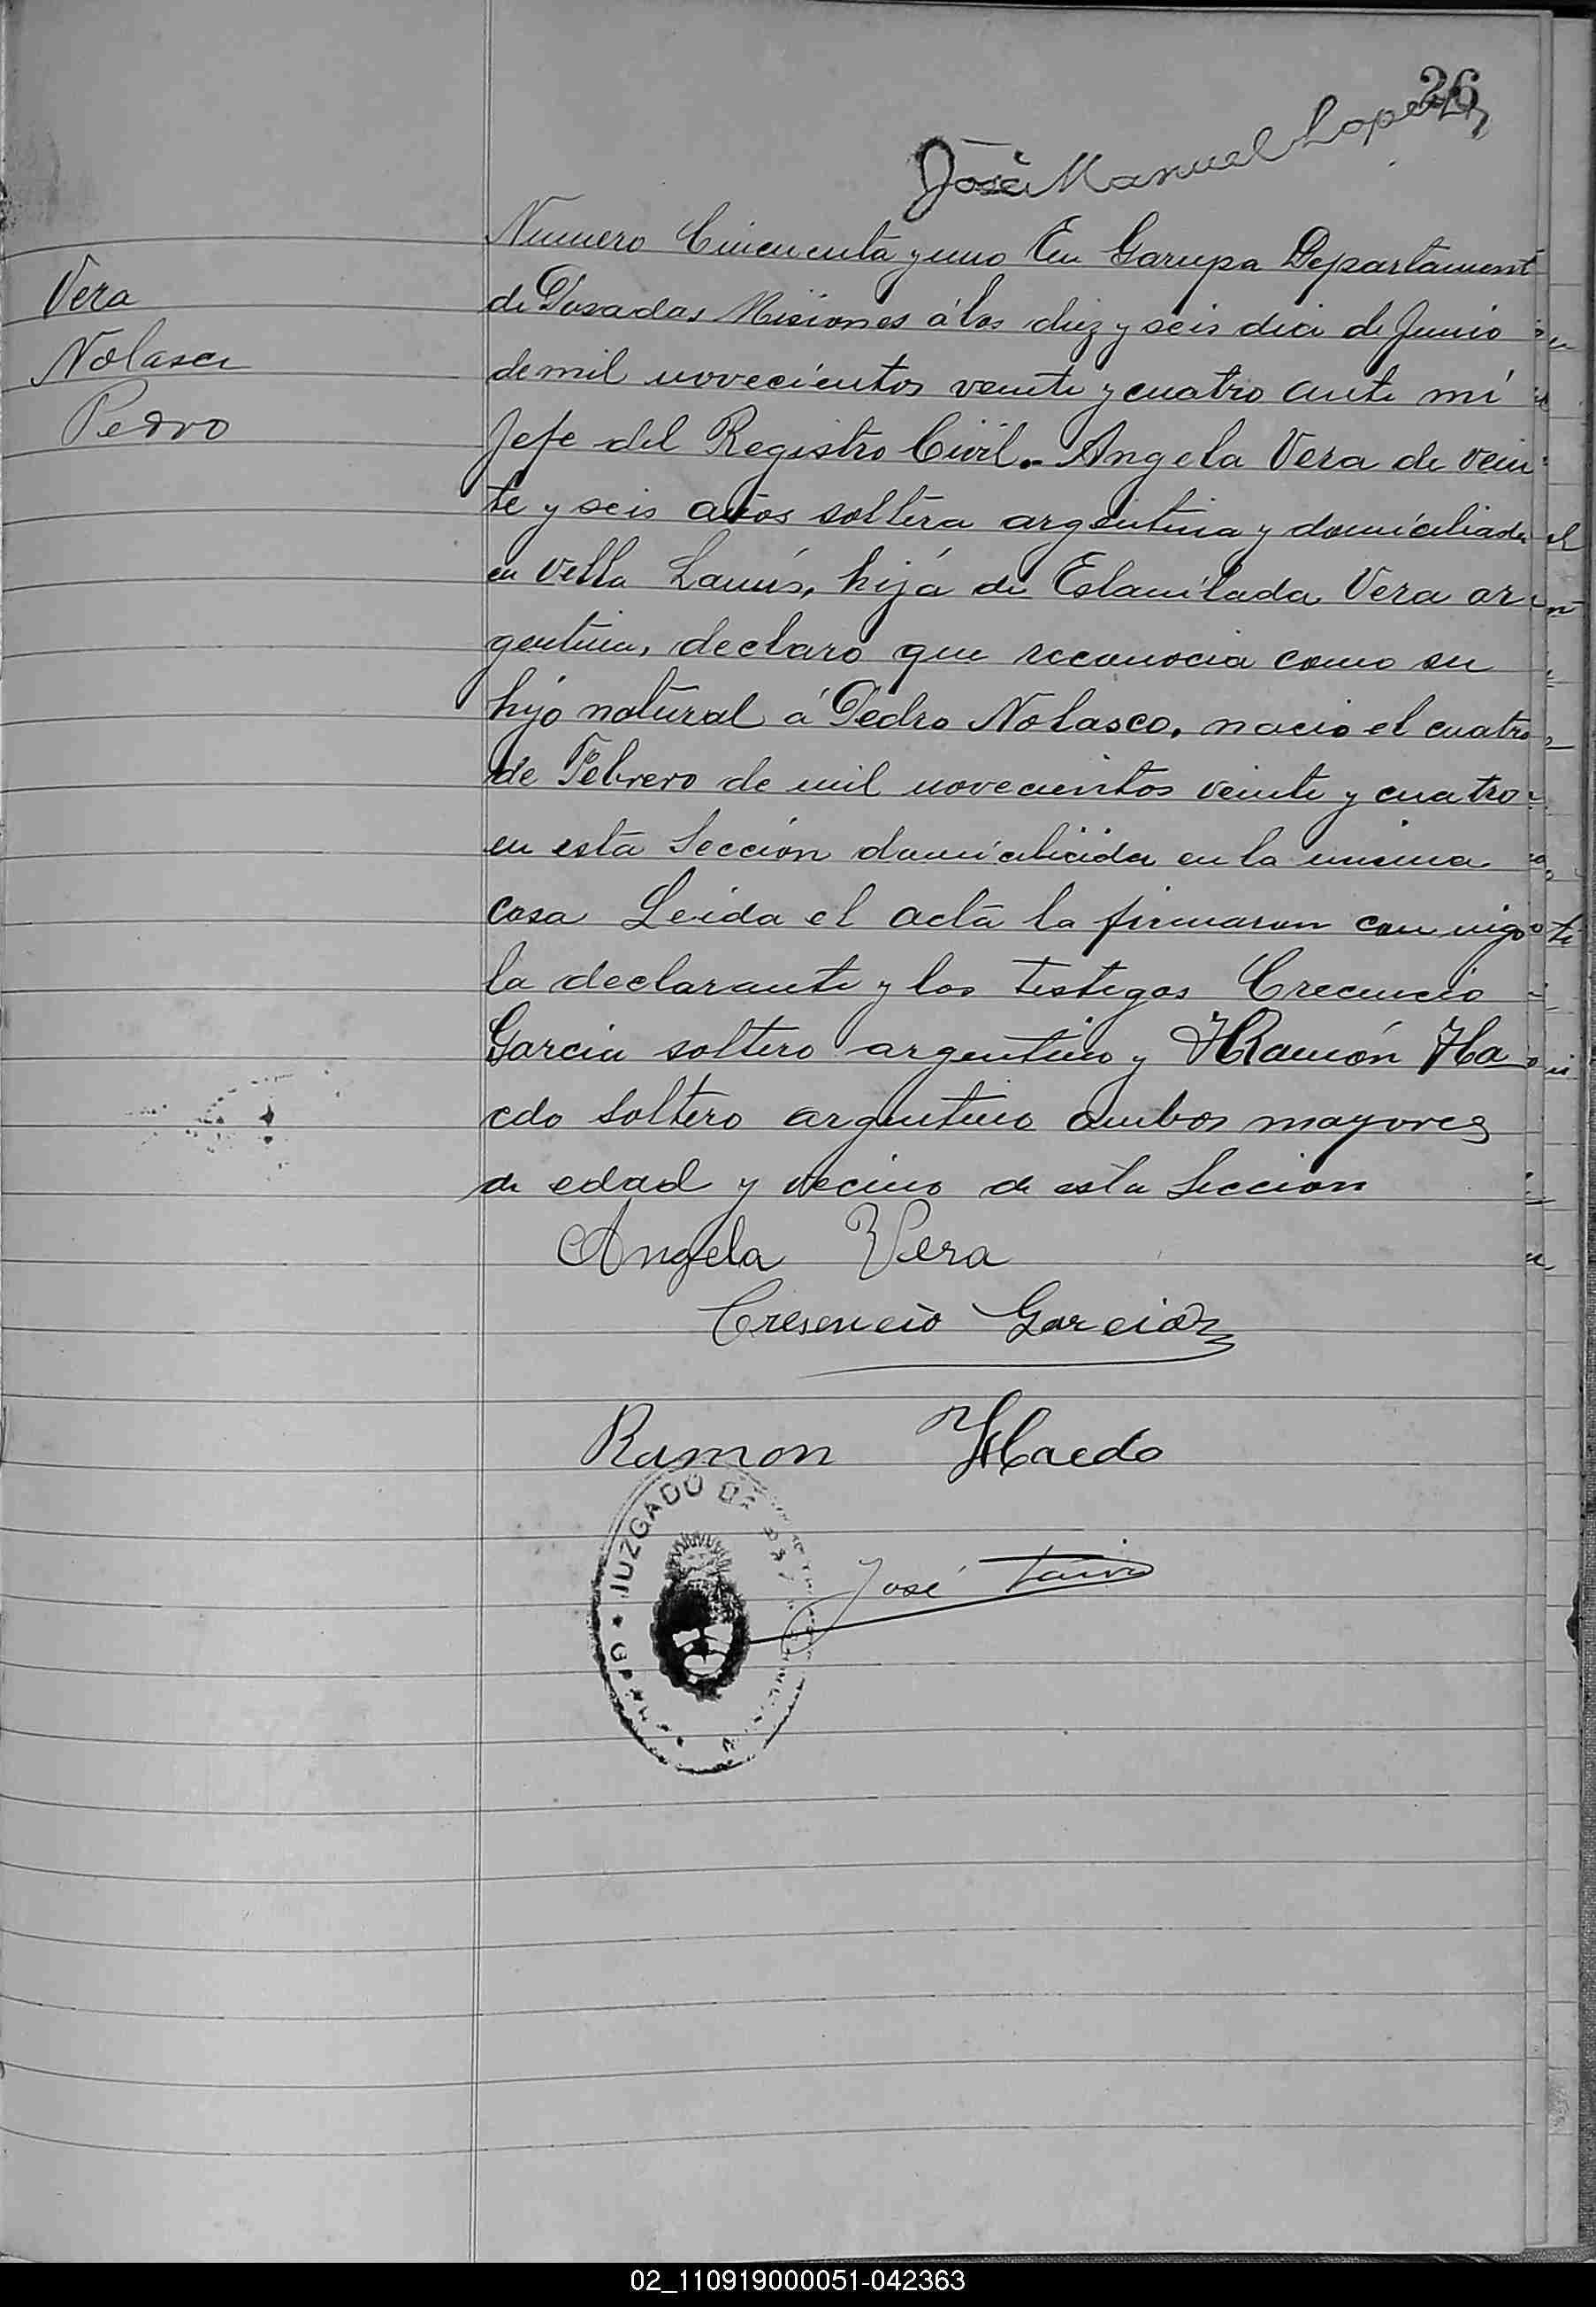 26
José Manuel Lopez
Vera
Nolasco
Pedro
Numero Cincuenta y uno En Garupa Departament
de Posadas Misiones á los diez y seis dia de Junio
de mil novecientos veinte y cuatro ante mi
Jefe del Registro Civil. Angela Vera de vein
te y seis años soltera argentina y domiciliada
en Villa Lanús, hija de Vera ar
gentina, declaro que reconocia como su
hijo natural á Pedro Nolasco, nacio el cuatro
de Febrero de mil novecientos veinte y cuatro
en esta Sección domiciliada en la misma
casa Leida el acta la firmaron con migo
la declarante y los testigos Crecencio
Garcia soltero argentino y Ramón Ha
edo soltero argentino ambos mayores
de edad y vecino de esta Seccion
Angela Vera
Cresencio Garcia
Ramon Haedo
JUZGADO DE
José
02_110919000051-042363